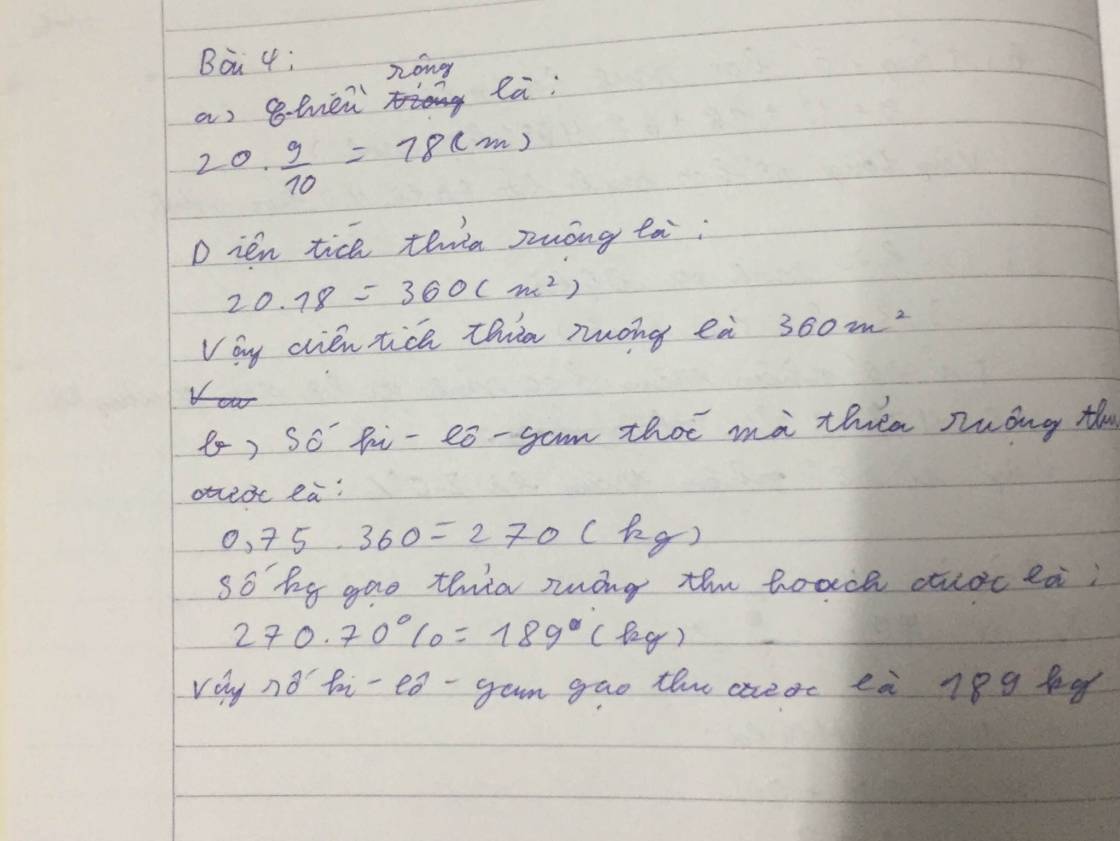 Bài 4:
a, Chiều rộng là:
20. 9/10 = 18(m)
Diện tích thửa ruộng là:
20.18 = 360(m²)
Vậy diện tích thửa ruộng là 360m²
b, Số ki-lô-gam thóc mà thửa ruộng thu
được là:
0,75 .360=270(kg)
Số kg gạo thửa ruộng thu hoạch được là:
270.70%=189(kg)
Vậy số ki-lô-gam gạo thu được là 189 kg